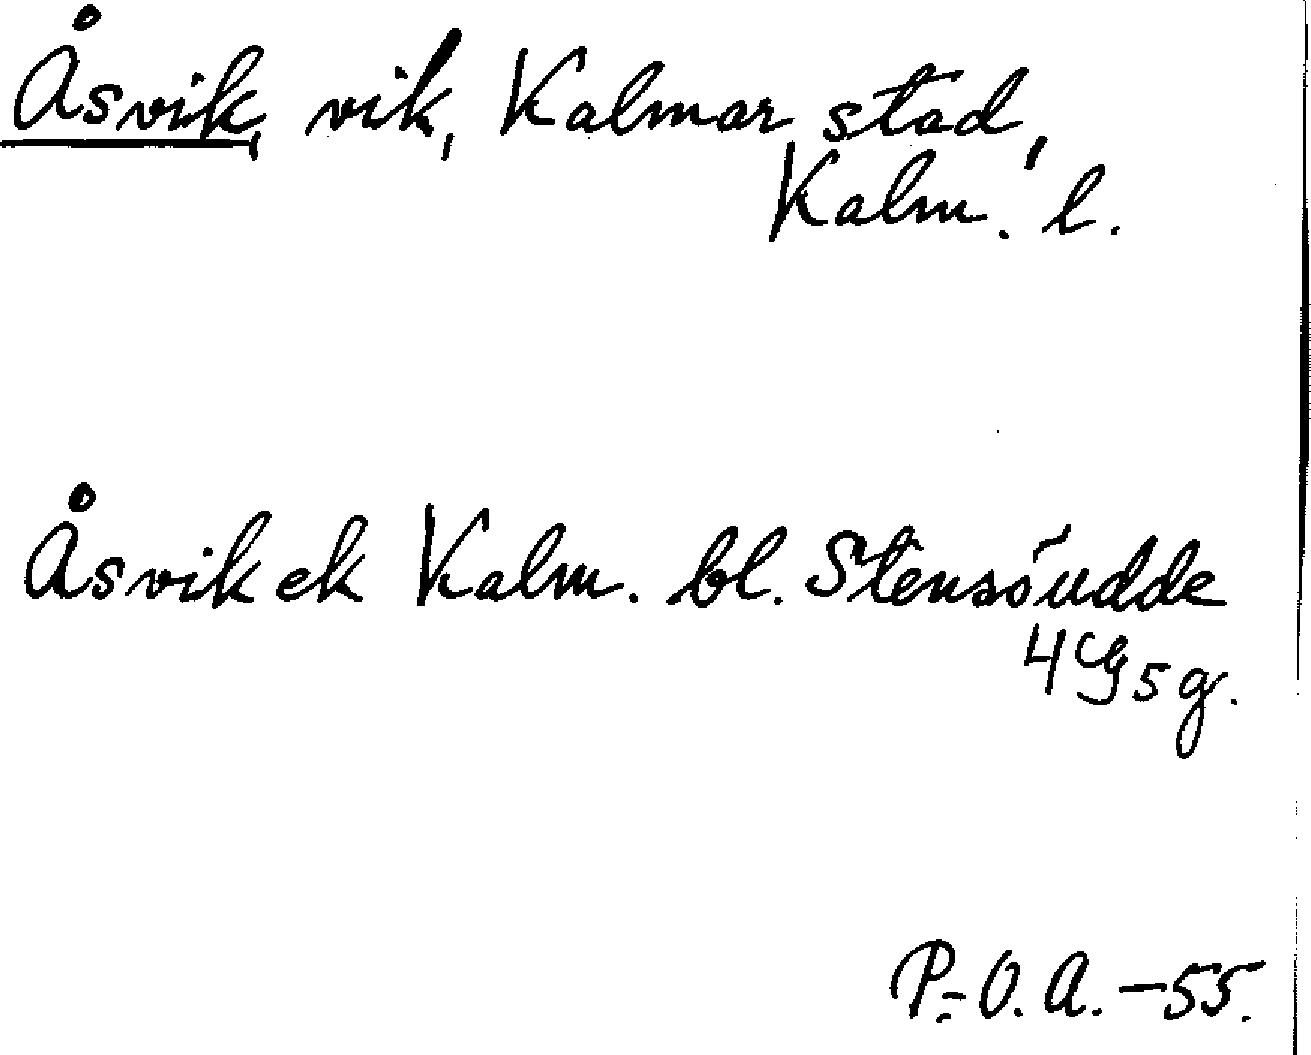 Åsvik, vik, Kalmar stad,
Kalm. l.
Åsvik ek Kalm. bl. Stensöudde
4G5g.
P.-O. A. -55.